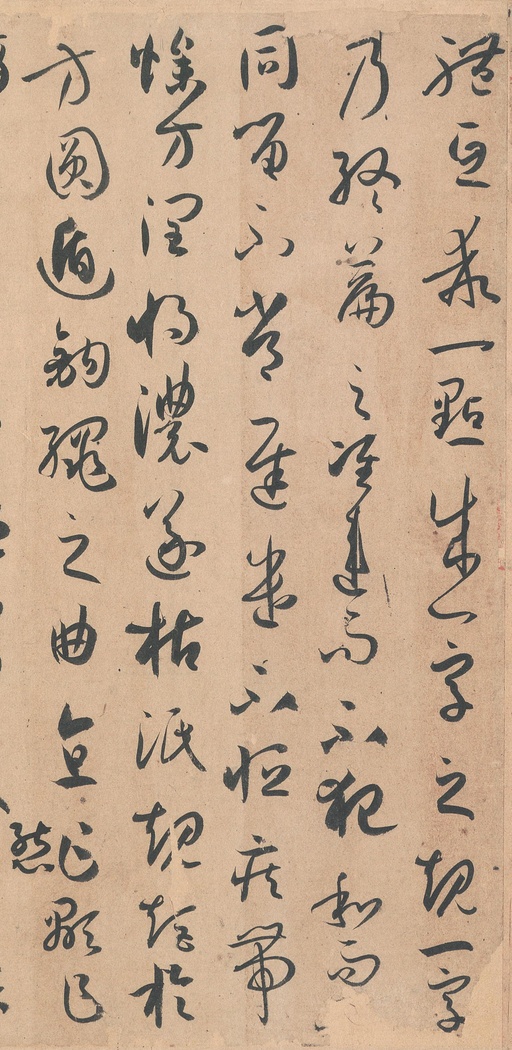 體互乖一點成一字之規一字
乃終篇之准違而不犯和而
同留不常遲遣不恒疾帶
燥方潤將濃遂枯泯規矩於
方圓遁鉤繩之曲直乍顯乍